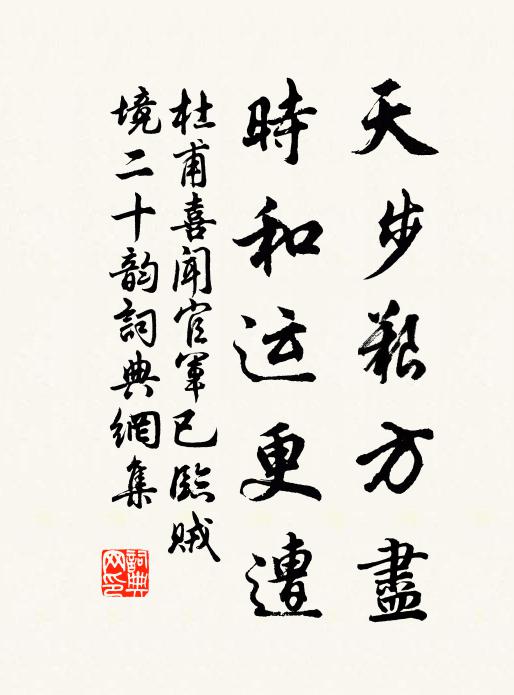 天步艱方盡
時和运更遭
杜甫喜闻官軍已臨賊
境二十韵詞典網集
詞典
网印